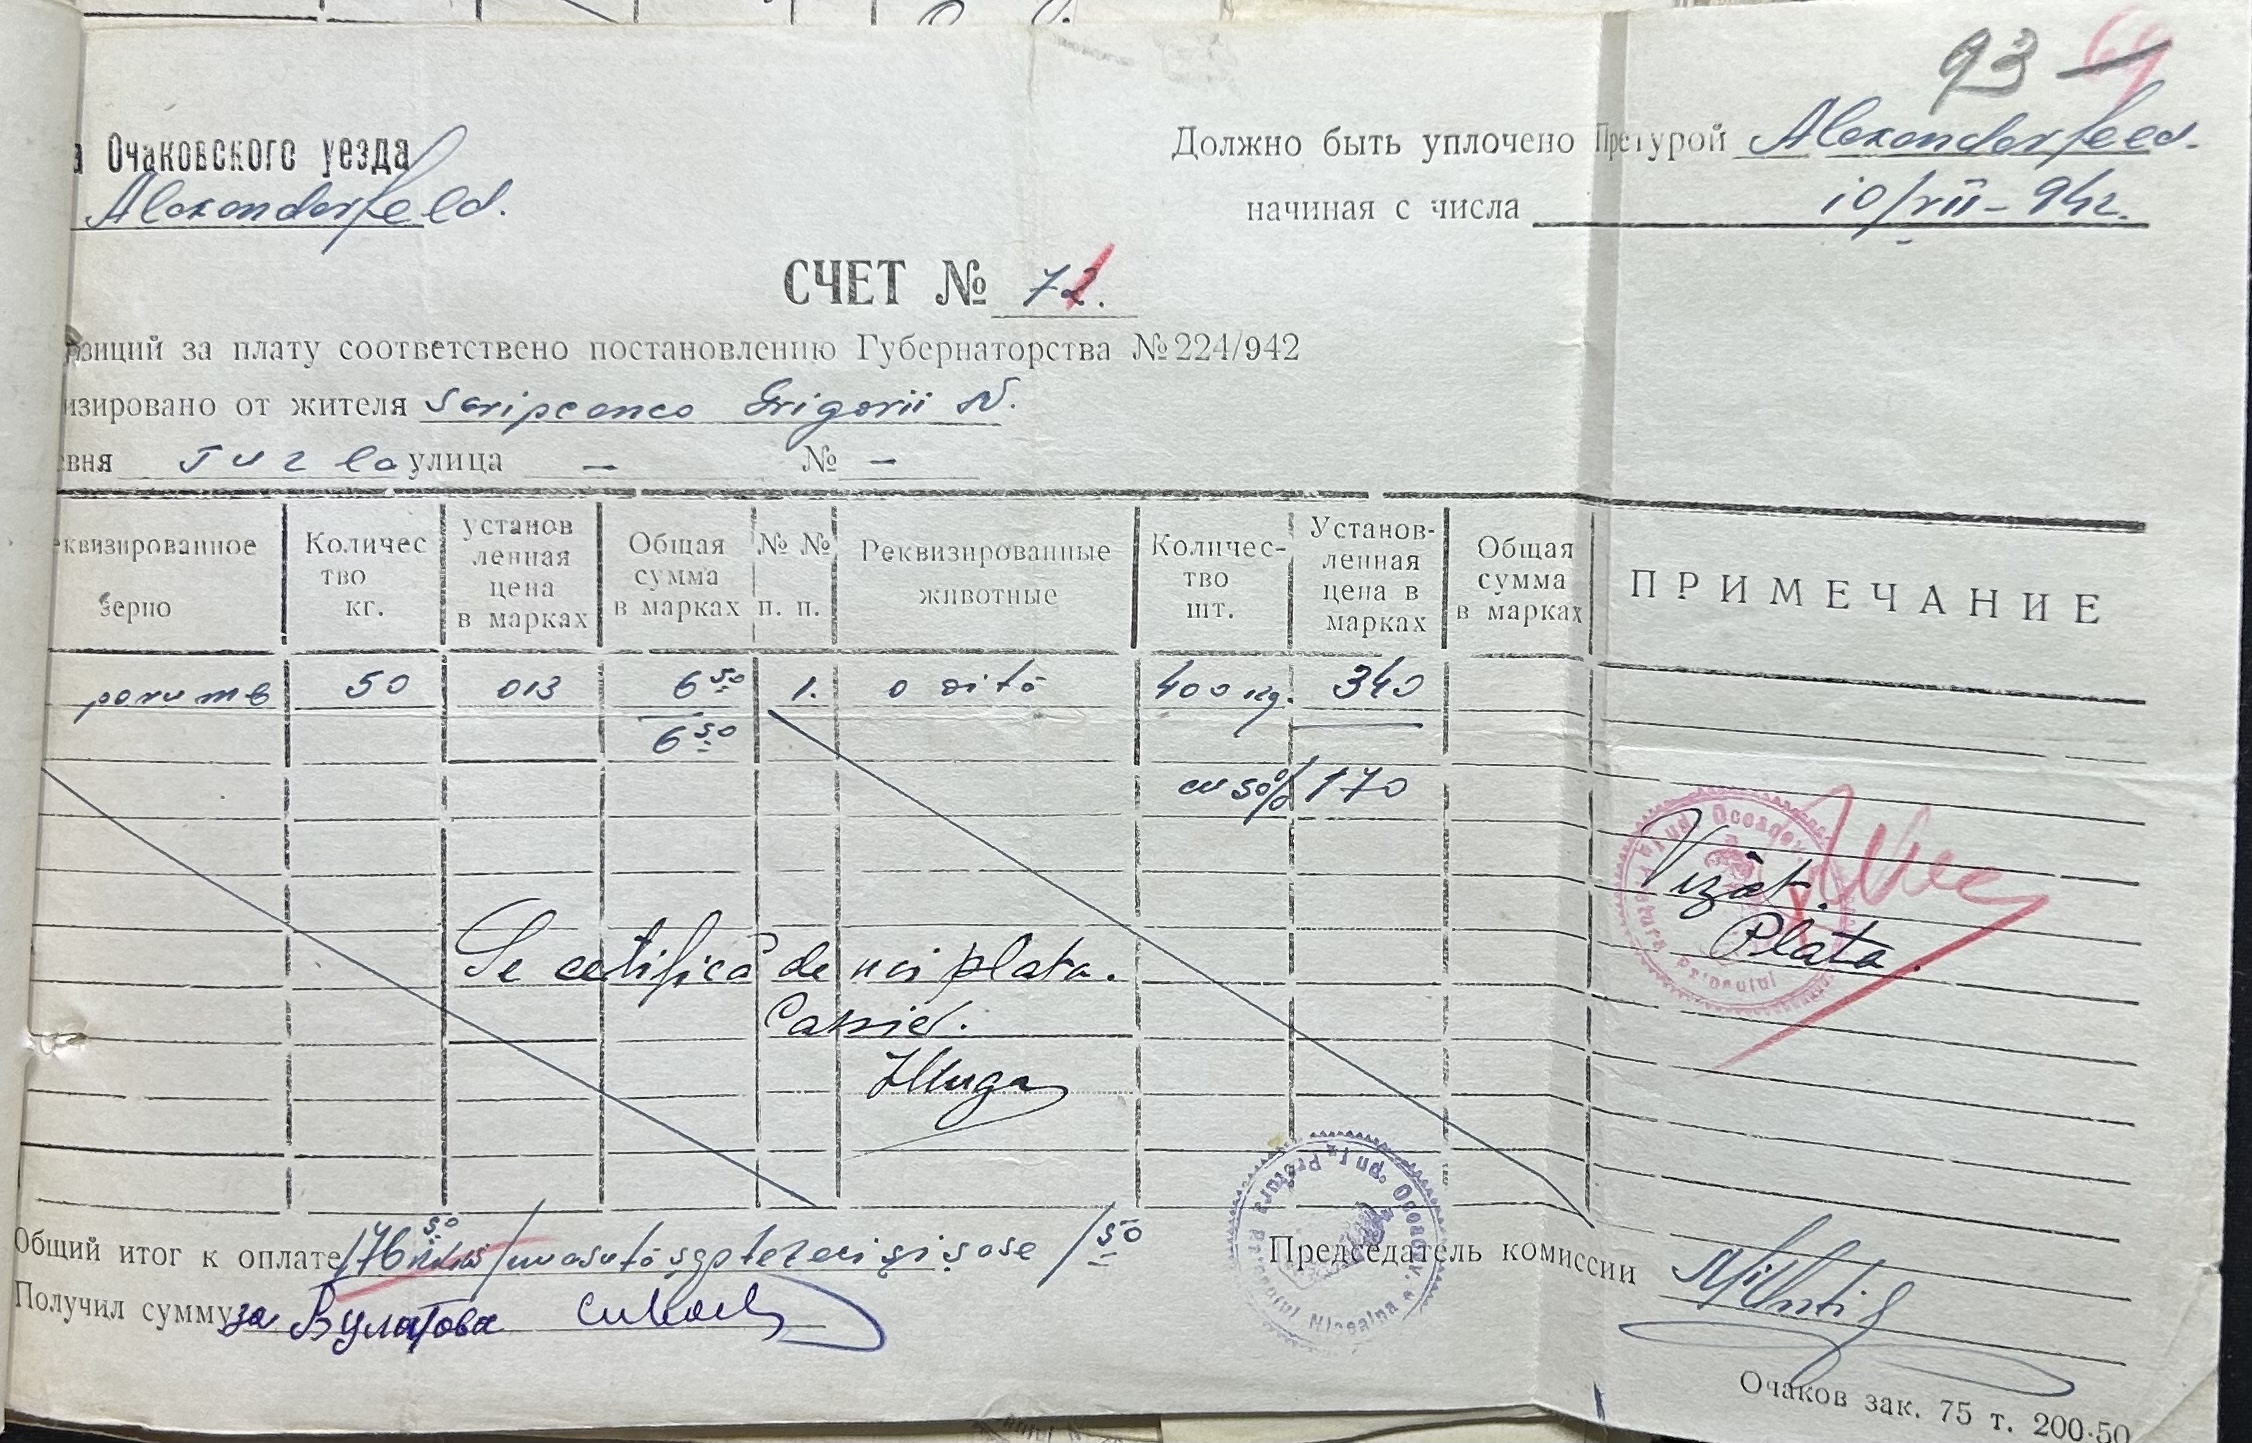 93 69
а Очаковского уезда
Должно быть уплочено Претурой Alexanderfeld.
Alexanderfeld.
начиная с числа 10/VII-942.
СЧЕТ № 72.
зиций за плату соответствено постановлению Губернаторства №224/942
изировано от жителя Scripcenco Grigorii N.
евня Tuzla улица — № —
еквизированное зерно
Количес тво кг.
установ ленная цена в марках
Общая сумма в марках
№ № п. п.
Реквизированные животные
Количес- тво шт.
Установ- ленная цена в марках
Общая сумма в марках
ПРИМЕЧАНИЕ
porumb 50 013 6 50 1. o vită 400 kg. 340
6 50
cu 50% 170
Vizat.
Plata.
Se certifică de noi plata.
Casier.
Общий итог к оплате 176 50 /unasută șaptezeci și șase /50
Председатель комиссии
Получил сумму за Булатова
Pretura Raionului
Jud. Oceacov
Очаков зак. 75 т. 200-50